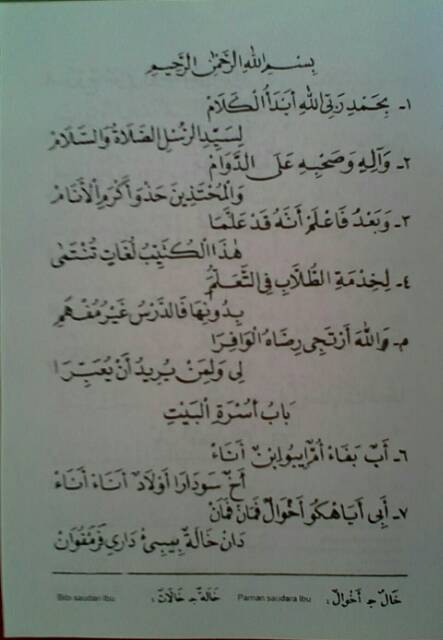 بِسْمِ اللهِ الرَّحْمٰنِ الرَّحِيْمِ
١- بِحَمْدِ رَبِّي اللهِ أَبْدَأُ الْكَلَامْ
لِسَيِّدِ الرُّسْلِ الصَّلَاةُ وَالسَّلَامْ
٢- وَآلِهِ وَصَحْبِهِ عَلَى الدَّوَامْ
وَالْمُحْتَذِينَ حَذْوَ أَكْرَمِ الْأَنَامْ
٣- وَبَعْدُ فَاعْلَمْ أَنَّهُ قَدْ عَلَّمَا
هٰذَا الْكُتَيِّبُ لُغَاتٍ تُنْتَمَى
٤- لِخِدْمَةِ الطُّلَّابِ فِي التَّعَلُّمِ
بِدُونِهَا فَالدَّرْسُ غَيْرُ مُفْهَمِ
م- وَاللهَ أَرْتَجِي رِضَاهُ الْوَافِرَا
لِي وَلِمَنْ يُرِيدُ أَنْ يُعَبِّرَا
بَابُ أُسْرَةِ الْبَيْتِ
٦- أَبٌ بَفَاءْ أُمٌّ إِيبُو ابْنٌ أَنَاءْ
أَخٌ سَوْدَارَا أَوْلَادٌ أَنَاءْ أَنَاءْ
٧- أَبِي أَيَاهْكُو أَخْوَالٌ فَمَانْ فَمَانْ
دَانْ خَالَةٌ بِيبِيْ دَارِي فَرَمْفُوَانْ
خَالٌ ج أَخْوَالٌ : Paman saudara Ibu
خَالَةٌ ج خَالَاتٌ : Bibi saudari Ibu